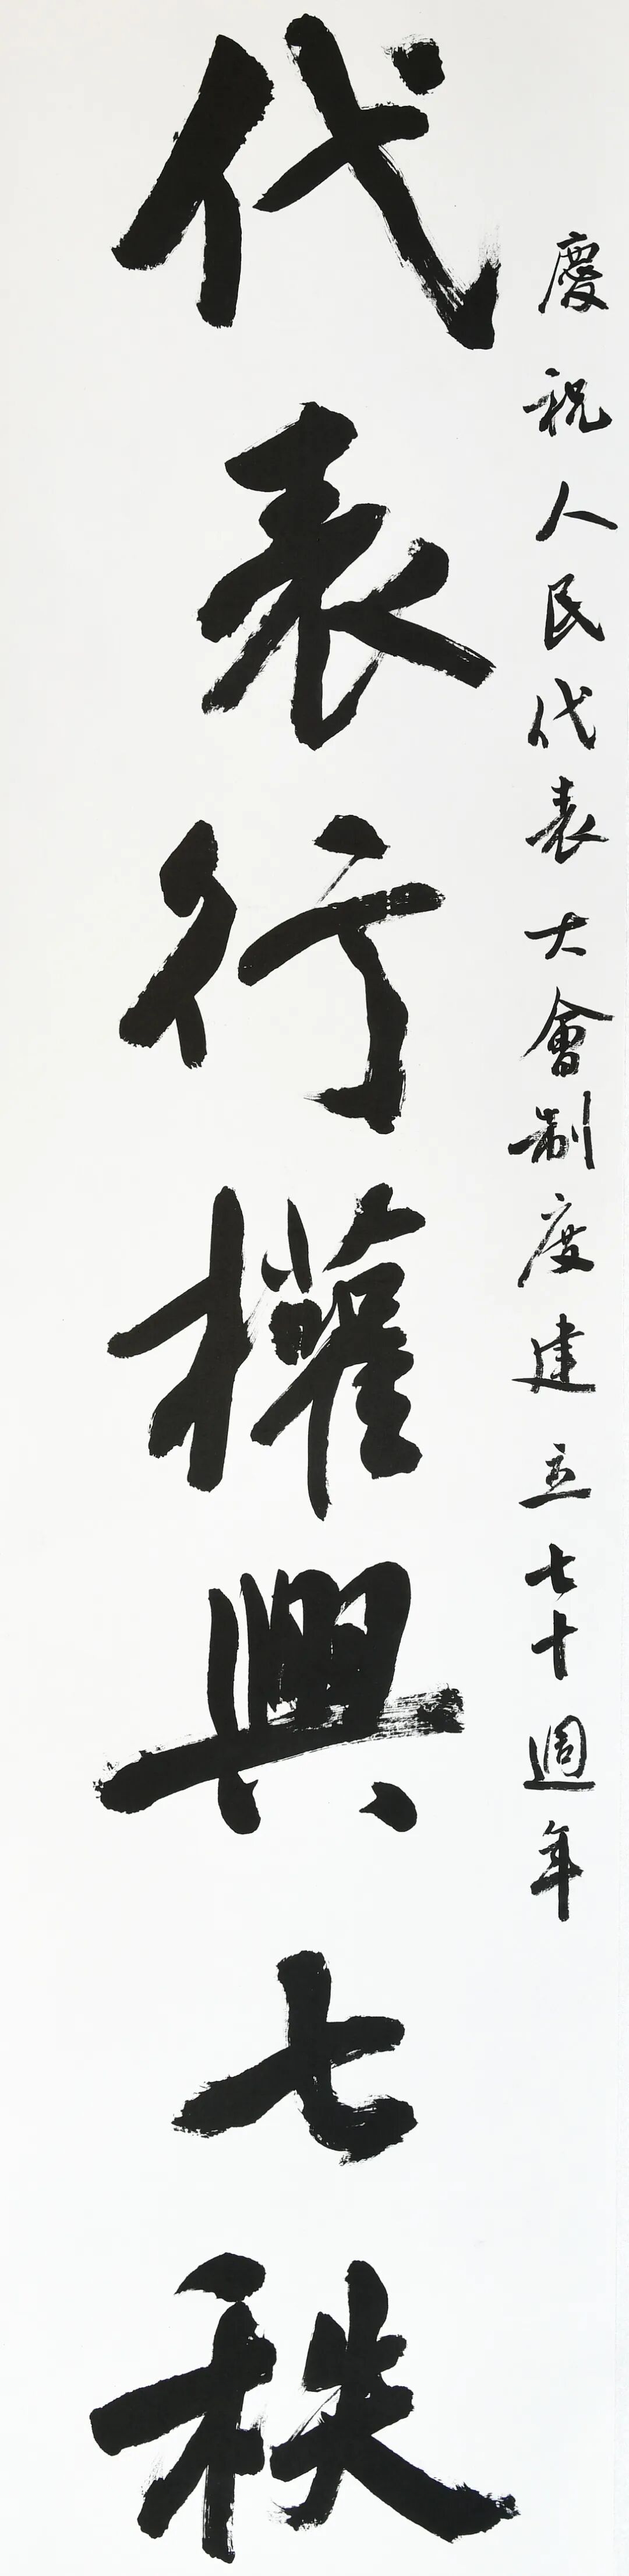 慶祝人民代表大會制度建立七十週年
代表行權興七秩